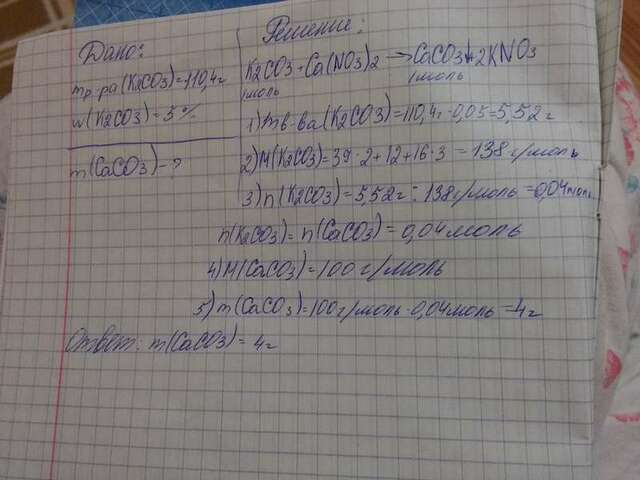 Дано:
mр-ра(K2CO3)=110,4г
w(K2CO3)=5%
m(CaCO3)-?
Решение:
K2CO3+Ca(NO3)2→CaCO3↓+2KNO3
1моль 1моль
1)mв-ва(K2CO3)=110,4г·0,05=5,52г
2)M(K2CO3)=39·2+12+16·3=138г/моль
3)n(K2CO3)=5,52г:138г/моль=0,04моль
n(K2CO3)=n(CaCO3)=0,04моль
4)M(CaCO3)=100г/моль
5)m(CaCO3)=100г/моль·0,04моль=4г
Ответ: m(CaCO3)=4г